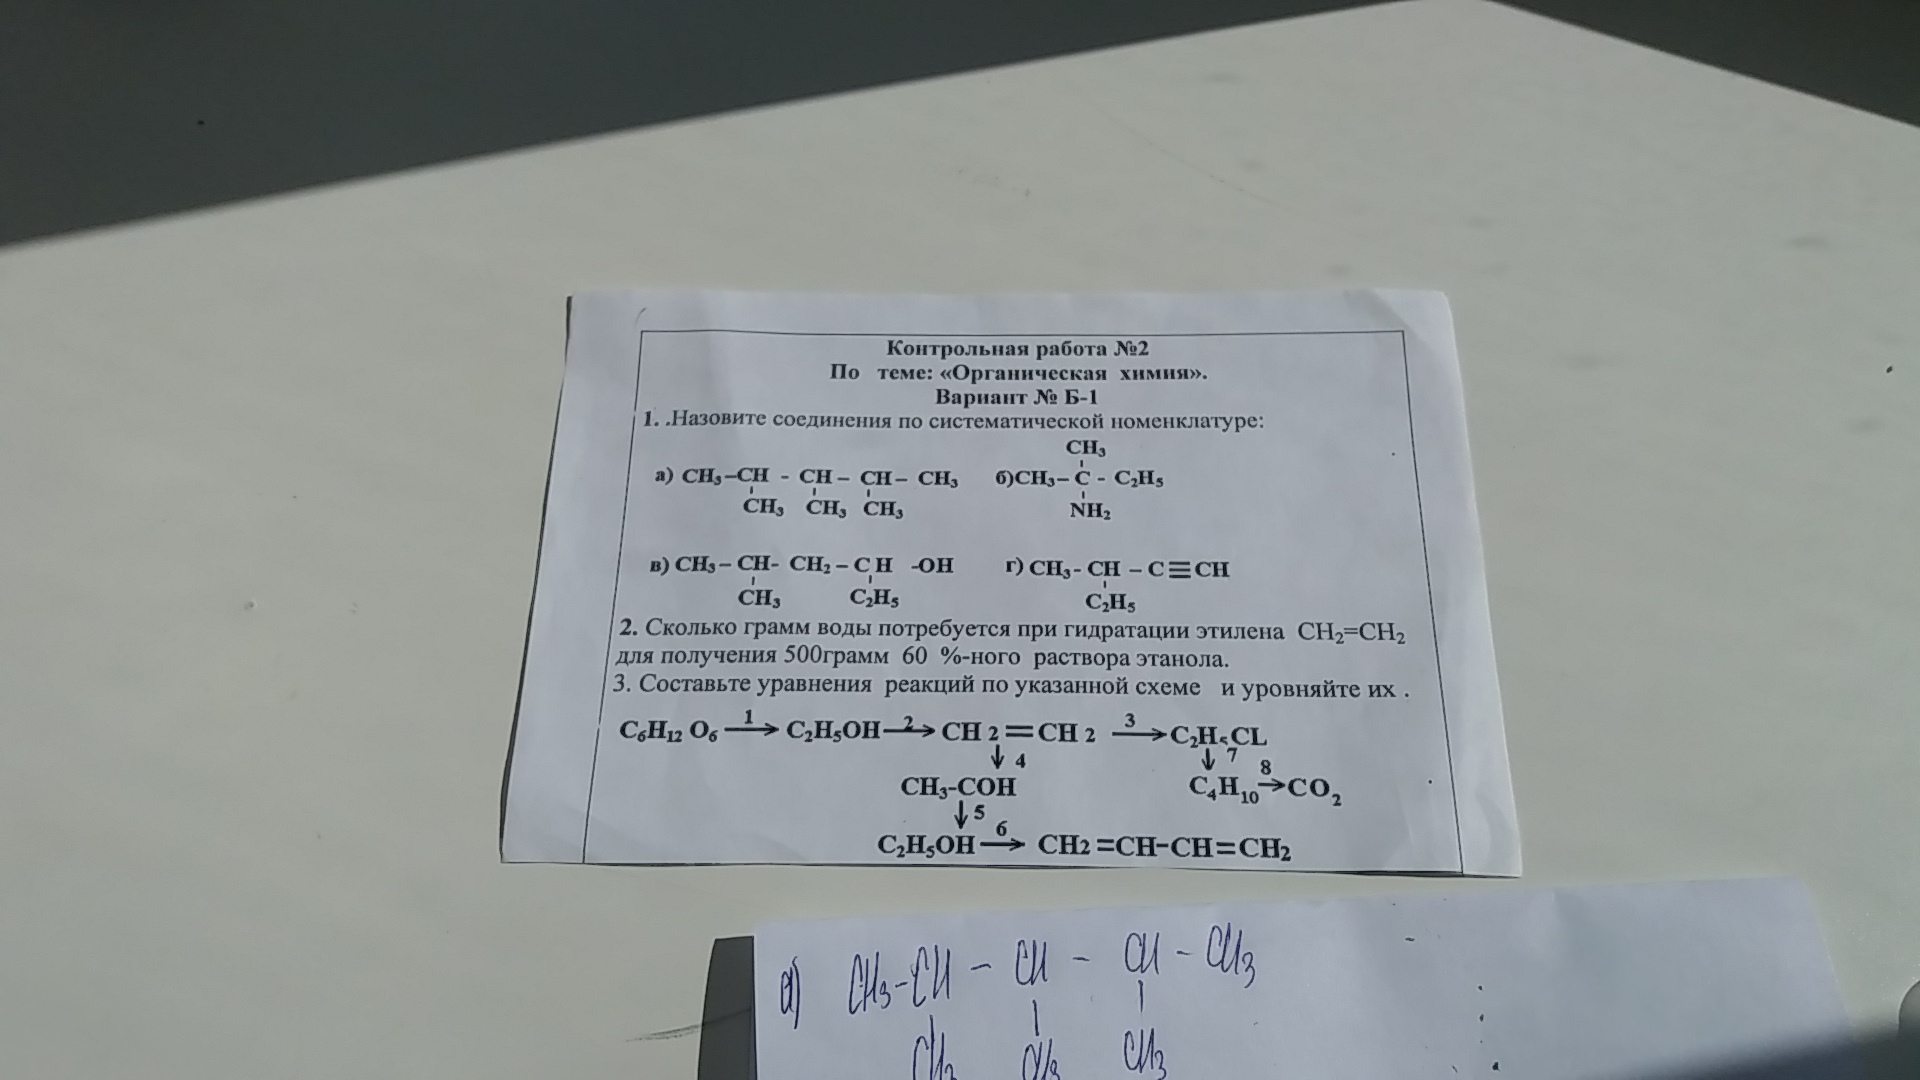 Контрольная работа №2
По теме: «Органическая химия».
Вариант № Б-1
1. .Назовите соединения по систематической номенклатуре:
CH₃
а) CH₃–CH - CH – CH – CH₃ б)CH₃– C - C₂H₅
CH₃ CH₃ CH₃ NH₂
в) CH₃ – CH- CH₂ – C H -OH г) CH₃ - CH – C≡CH
CH₃ C₂H₅ C₂H₅
2. Сколько грамм воды потребуется при гидратации этилена CH₂=CH₂
для получения 500грамм 60 %-ного раствора этанола.
3. Составьте уравнения реакций по указанной схеме и уровняйте их .
1 2 3
C₆H₁₂ O₆ → C₂H₅OH → CH 2 = CH 2 → C₂H₅CL
↓ 4 ↓ 7 8
CH₃-COH C₄H₁₀ → CO₂
↓ 5 6
C₂H₅OH → CH2 =CH-CH=CH₂
а) CH₃-CH - CH - CH - CH₃
CH₃ CH₃ CH₃